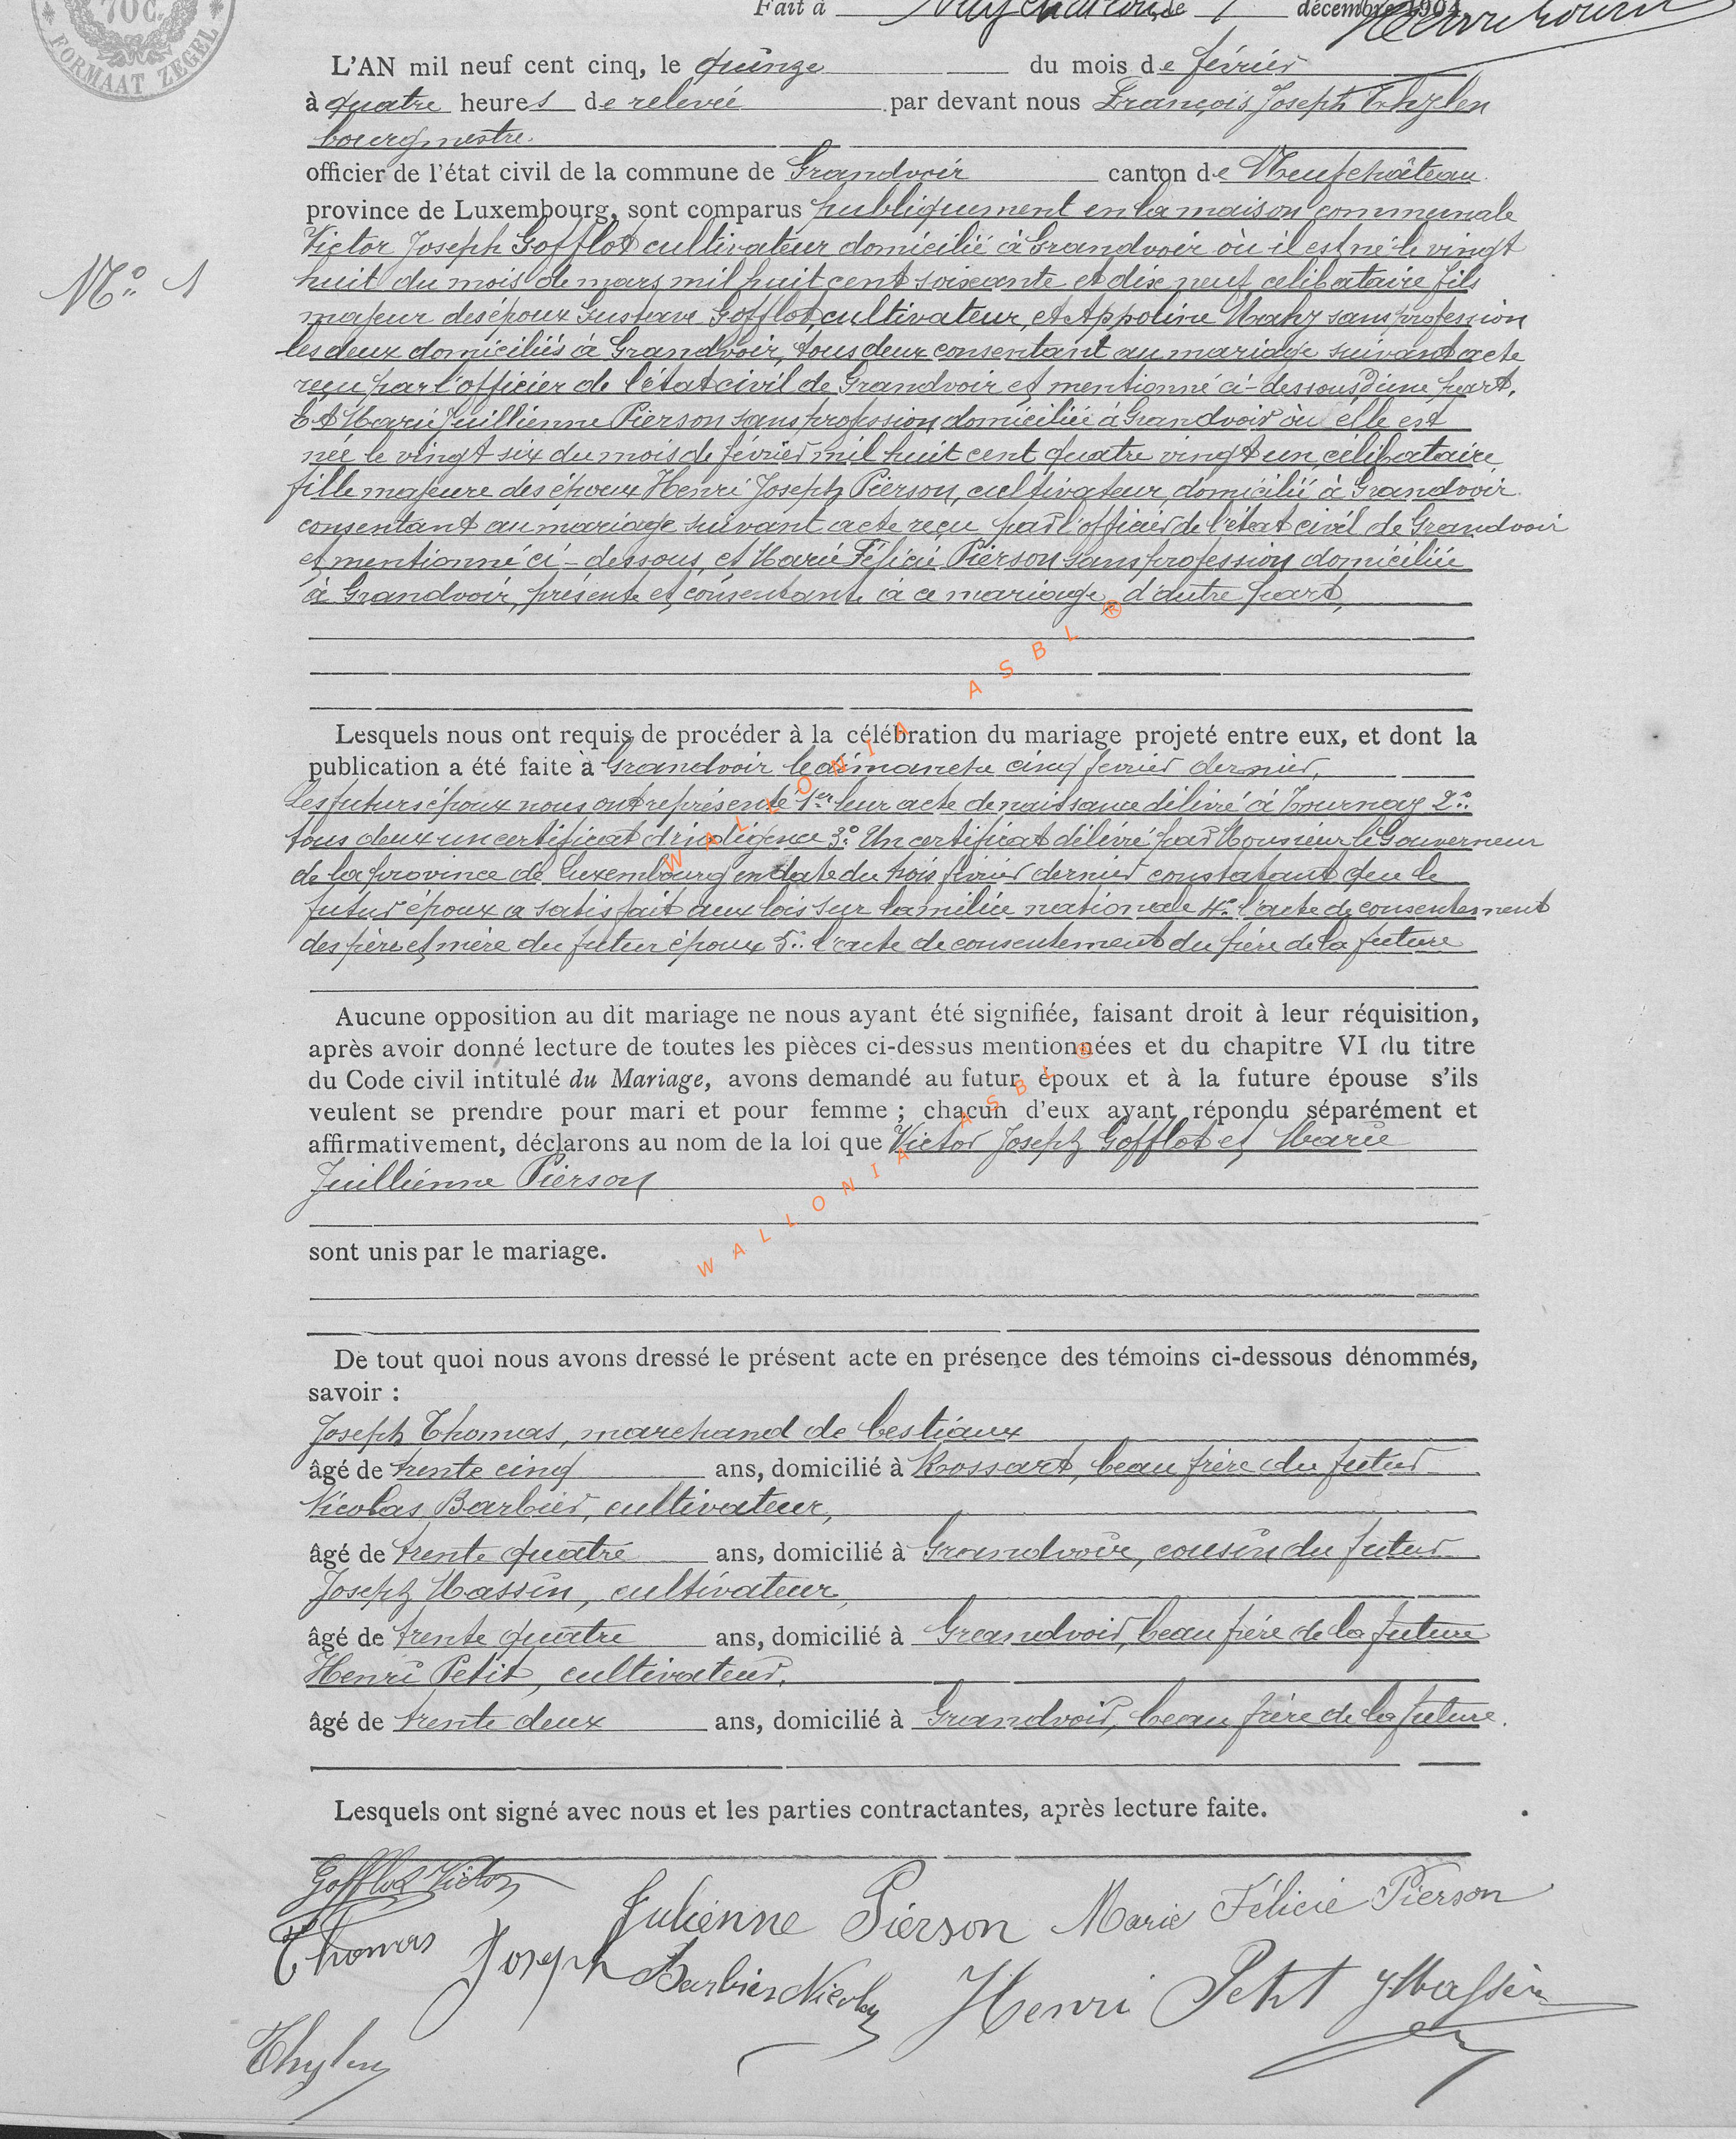 70C.
FORMAAT ZEGEL
Fait à Neufchâteau, le décembre 1904
L'AN mil neuf cent cinq, le quinze du mois de février
à quatre heures de relevée par devant nous François Joseph Thylen
bourgmestre.
officier de l'état civil de la commune de Grandvoir canton de Neufchâteau.
province de Luxembourg, sont comparus publiquement en la maison communale
Victor Joseph Gofflot cultivateur domicilié à Grandvoir où il est né le vingt
Nº 1
huit du mois de mars mil huit cent soixante et dix neuf célibataire fils
majeur des époux Gustave Gofflot, cultivateur, et Appoline sans profession
les deux domiciliés à Grandvoir, tous deux consentant au mariage suivant acte
reçu par l'officier de l'état civil de Grandvoir et mentionné ci-dessous d'une part.
Et Marie Juillienne Pierson sans profession domiciliée à Grandvoir où elle est
née le vingt six du mois de février mil huit cent quatre vingt un, célibataire
fille majeure des époux Henri Joseph Pierson, cultivateur, domicilié à Grandvoir
consentant au mariage suivant acte reçu par l'officier de l'état civil de Grandvoir
et mentionné ci-dessous, et Marie Félicie Pierson sans profession domiciliée
à Grandvoir, présente et consentante à ce mariage, d'autre part,
Lesquels nous ont requis de procéder à la célébration du mariage projeté entre eux, et dont la
publication a été faite à Grandvoir le dimanche cinq fevrier dernier,
Les futurs époux nous ont représenté 1er leur acte de naissance délivré à Tournay 2º
tous deux un certificat d'indigence 3º Un certificat délivré par Monsieur le Gouverneur
de la province de Luxembourg en date du trois février dernier constatant que le
futur époux a satisfait aux lois sur la milice nationale 4º l'acte de consentement
des père et mère du futur époux 5º l'acte de consentement du père de la future
Aucune opposition au dit mariage ne nous ayant été signifiée, faisant droit à leur réquisition,
après avoir donné lecture de toutes les pièces ci-dessus mentionnées et du chapitre VI du titre
du Code civil intitulé du Mariage, avons demandé au futur époux et à la future épouse s'ils
veulent se prendre pour mari et pour femme ; chacun d'eux ayant répondu séparément et
affirmativement, déclarons au nom de la loi que Victor Joseph Gofflot et Marie
Juillienne Pierson
sont unis par le mariage.
De tout quoi nous avons dressé le présent acte en présence des témoins ci-dessous dénommés,
savoir :
Joseph Thomas, marchand de bestiaux
âgé de trente cinq ans, domicilié à Rossart, beau frère du futur
Nicolas Barbier, cultivateur,
âgé de trente quatre ans, domicilié à Grandvoir, cousin du futur
Joseph Massin, cultivateur,
âgé de trente quatre ans, domicilié à Grandvoir, beau frère de la future
Henri Petit, cultivateur.
âgé de trente deux ans, domicilié à Grandvoir, beau frère de la future.
Lesquels ont signé avec nous et les parties contractantes, après lecture faite.
Gofflot Victor
Julienne Pierson Marie Félicie Pierson
Thomas Joseph Barbier Nicolas Henri Petit J Massin
Thylen
WALLONIA ASBL ®
WALLONIA ASBL ®